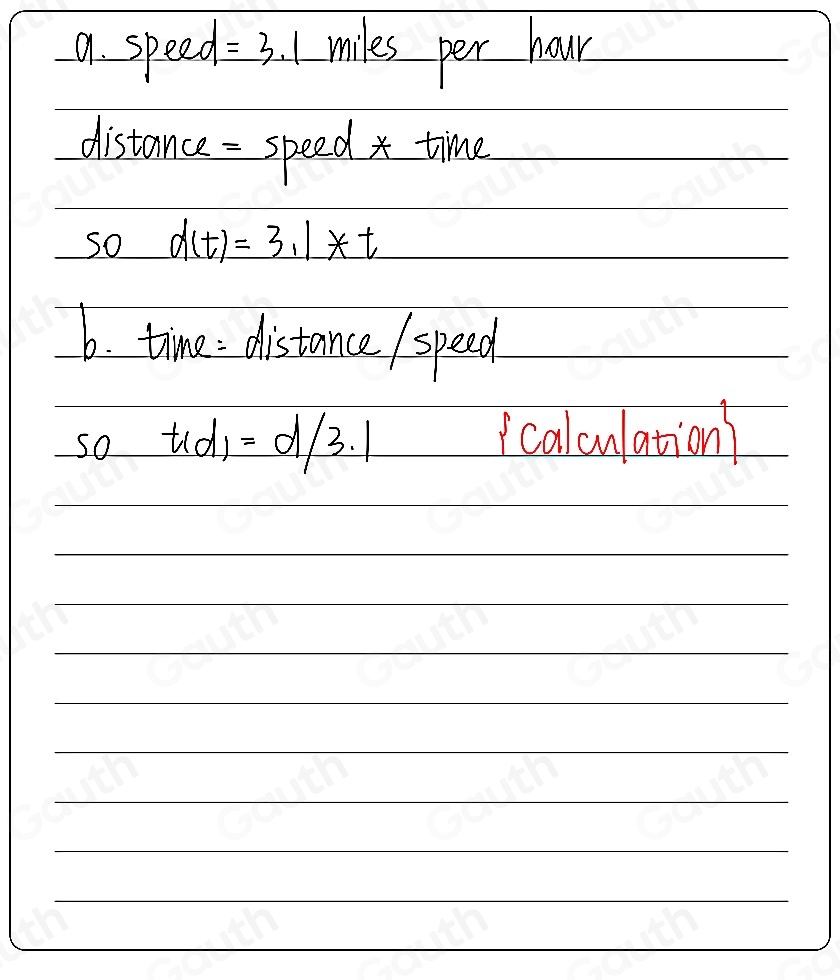 a. speed = 3.1 miles per hour
distance = speed * time
so d(t) = 3.1 * t
b. time = distance / speed
so t(d) = d/3.1 {Calculation}